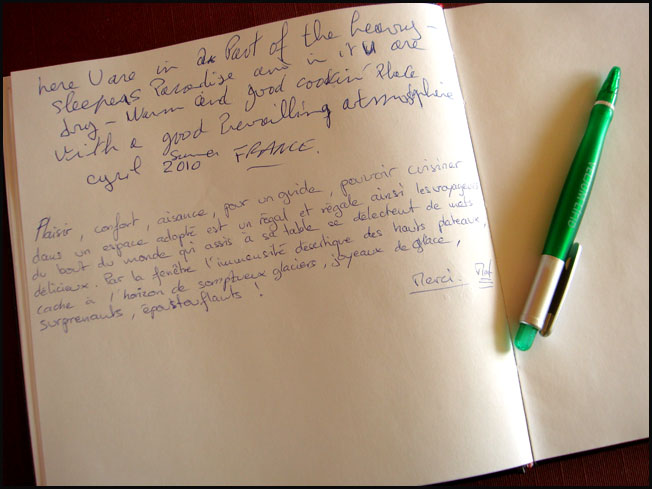 here U are in a Part of the heavy-
sleepers Paradise and in it U are
dry - Warm and good cookin' Place
With a good Prevailling atmosphere
cyril Summer 2010 FRANCE.
Plaisir, confort, aisance, pour un guide, pouvoir cuisiner
dans un espace adapté est un régal et régale ainsi les voyageurs
du bout du monde qui assis à sa table se délectent de mets
délicieux. Par la fenêtre l'immensité désertique des hauts plateaux,
cache à l'horizon de somptueux glaciers, joyeaux de glace,
surprenants, époustouflants !
Merci.